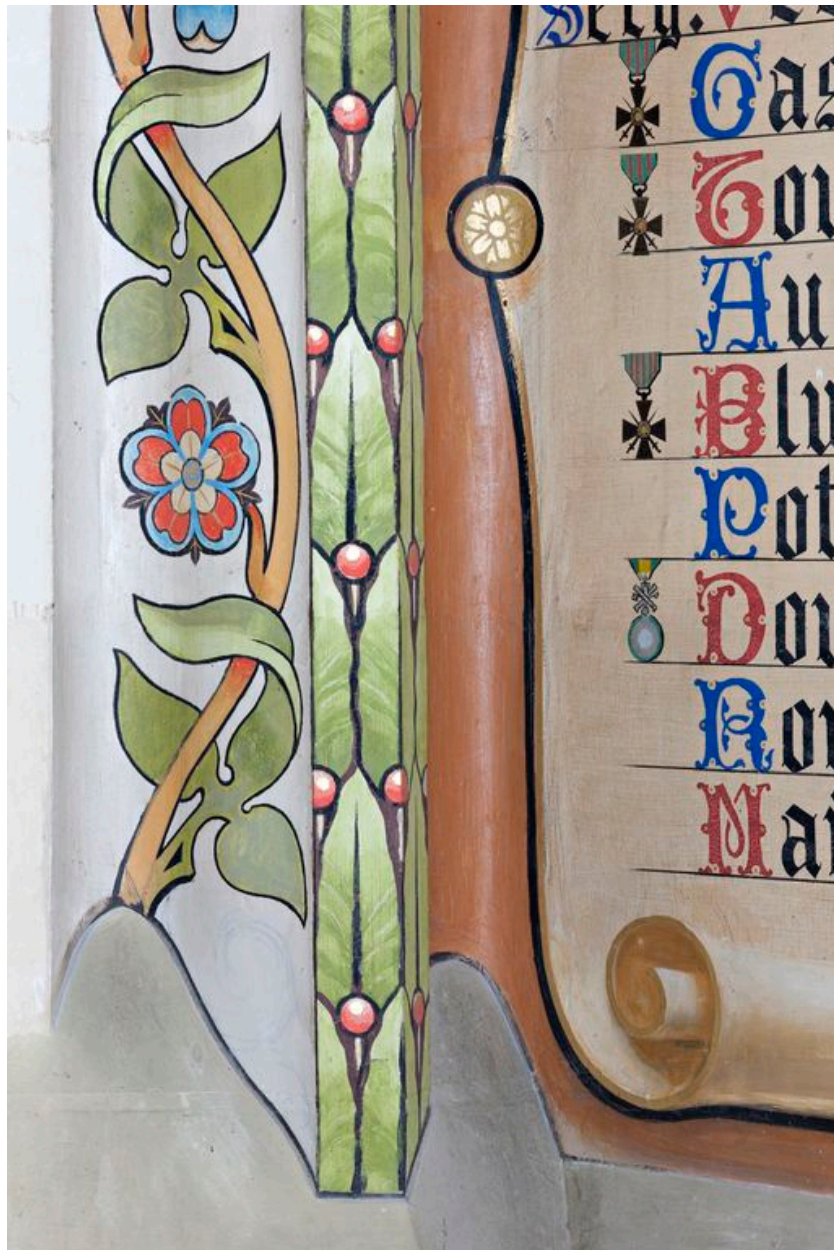 Gas
Tou
Au
Blu
Pot
Dou
Rou
Mai